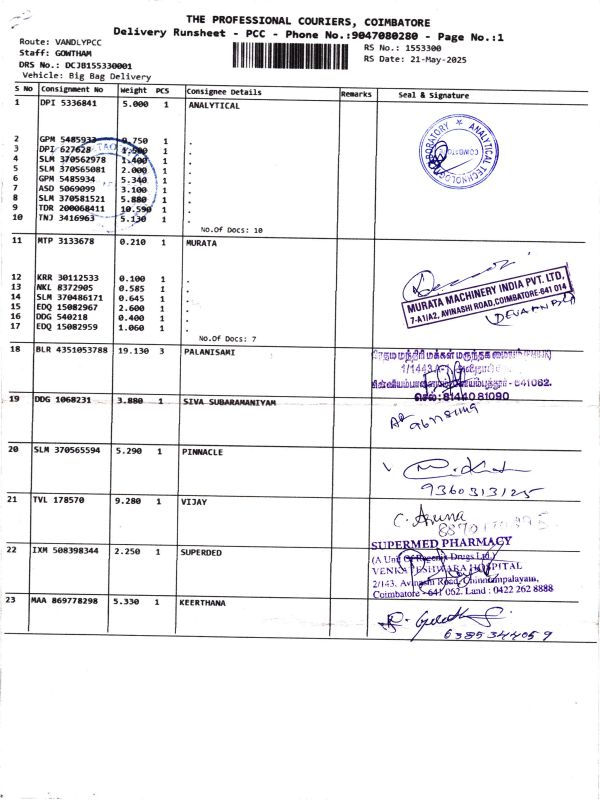 THE PROFESSIONAL COURIERS, COIMBATORE
Delivery Runsheet - PCC - Phone No.:9047080280 - Page No.:1
Route: VANDLYPCC
RS No.: 1553300
Staff: GOWTHAM
RS Date: 21-May-2025
DRS No.: DCJB155330001
Vehicle: Big Bag Delivery
S No Consignment No Weight PCS Consignee Details Remarks Seal & Signature
1 DPI 5336841 5.000 1 ANALYTICAL
2 GPM 5485933 0.750 1 .
3 DPI 627628 1.500 1 .
4 SLM 370562978 1.400 1 .
5 SLM 370565081 2.000 1 .
6 GPM 5485934 5.340 1 .
7 ASD 5069099 3.100 1 .
8 SLM 370581521 5.880 1 .
9 TDR 200068411 10.590 1 .
10 TNJ 3416963 5.130 1 .
No.Of Docs: 10
11 MTP 3133678 0.210 1 MURATA
12 KRR 30112533 0.100 1 .
13 NKL 8372905 0.585 1 .
14 SLM 370486171 0.645 1 .
15 EDQ 15082967 2.600 1 .
16 DDG 540218 0.400 1 .
17 EDQ 15082959 1.060 1 .
No.Of Docs: 7
MURATA MACHINERY INDIA PVT. LTD,
7-A1/A2, AVINASHI ROAD, COIMBATORE-641 014
18 BLR 4351053788 19.130 3 PALANISAMI
641062.
செல்: 8144081090
19 DDG 1068231 3.880 1 SIVA SUBARAMANIYAM
20 SLM 370565594 5.290 1 PINNACLE
9360313125
21 TVL 178570 9.280 1 VIJAY
C. Aruna
22 IXM 508398344 2.250 1 SUPERDED
SUPERMED PHARMACY
VENKATESHWARA HOSPITAL
2/143, Avinashi Road, Chinniampalayam,
Coimbatore - 641 062. Land : 0422 262 8888
23 MAA 869778298 5.330 1 KEERTHANA
6385344059